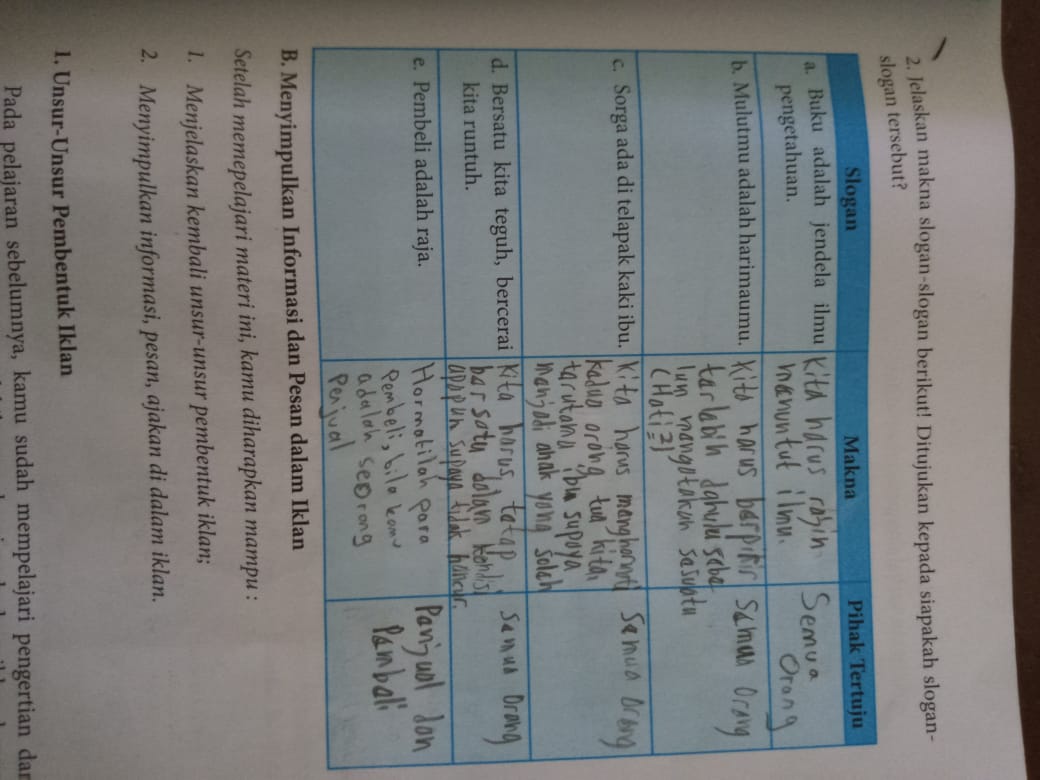 2. Jelaskan makna slogan-slogan berikut! Ditujukan kepada siapakah slogan-
slogan tersebut?
Slogan
Makna
Pihak Tertuju
a. Buku adalah jendela ilmu
pengetahuan.
Kita harus rajin
menuntut ilmu.
Semua
Orang
b. Mulutmu adalah harimaumu.
Kita harus berpikir
terlebih dahulu sebe
lum mengatakan sesuatu
(Hati=2)
Semua Orang
c. Sorga ada di telapak kaki ibu.
Kita harus menghormati
kedua orang tua kita,
terutama ibu supaya
menjadi anak yang soleh
Semua Orang
d. Bersatu kita teguh, bercerai
kita runtuh.
Kita harus tetap
bersatu dalam kondisi
apapun supaya tidak hancur.
Semua Orang
e. Pembeli adalah raja.
Hormatilah para
pembeli, bila kamu
adalah seorang
penjual
Penjual dan
Pembeli
B. Menyimpulkan Informasi dan Pesan dalam Iklan
Setelah memepelajari materi ini, kamu diharapkan mampu :
1. Menjelaskan kembali unsur-unsur pembentuk iklan;
2. Menyimpulkan informasi, pesan, ajakan di dalam iklan.
1. Unsur-Unsur Pembentuk Iklan
Pada pelajaran sebelumnya, kamu sudah mempelajari pengertian dan